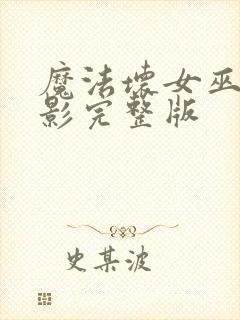 魔法坏女巫
影完整版
史某波